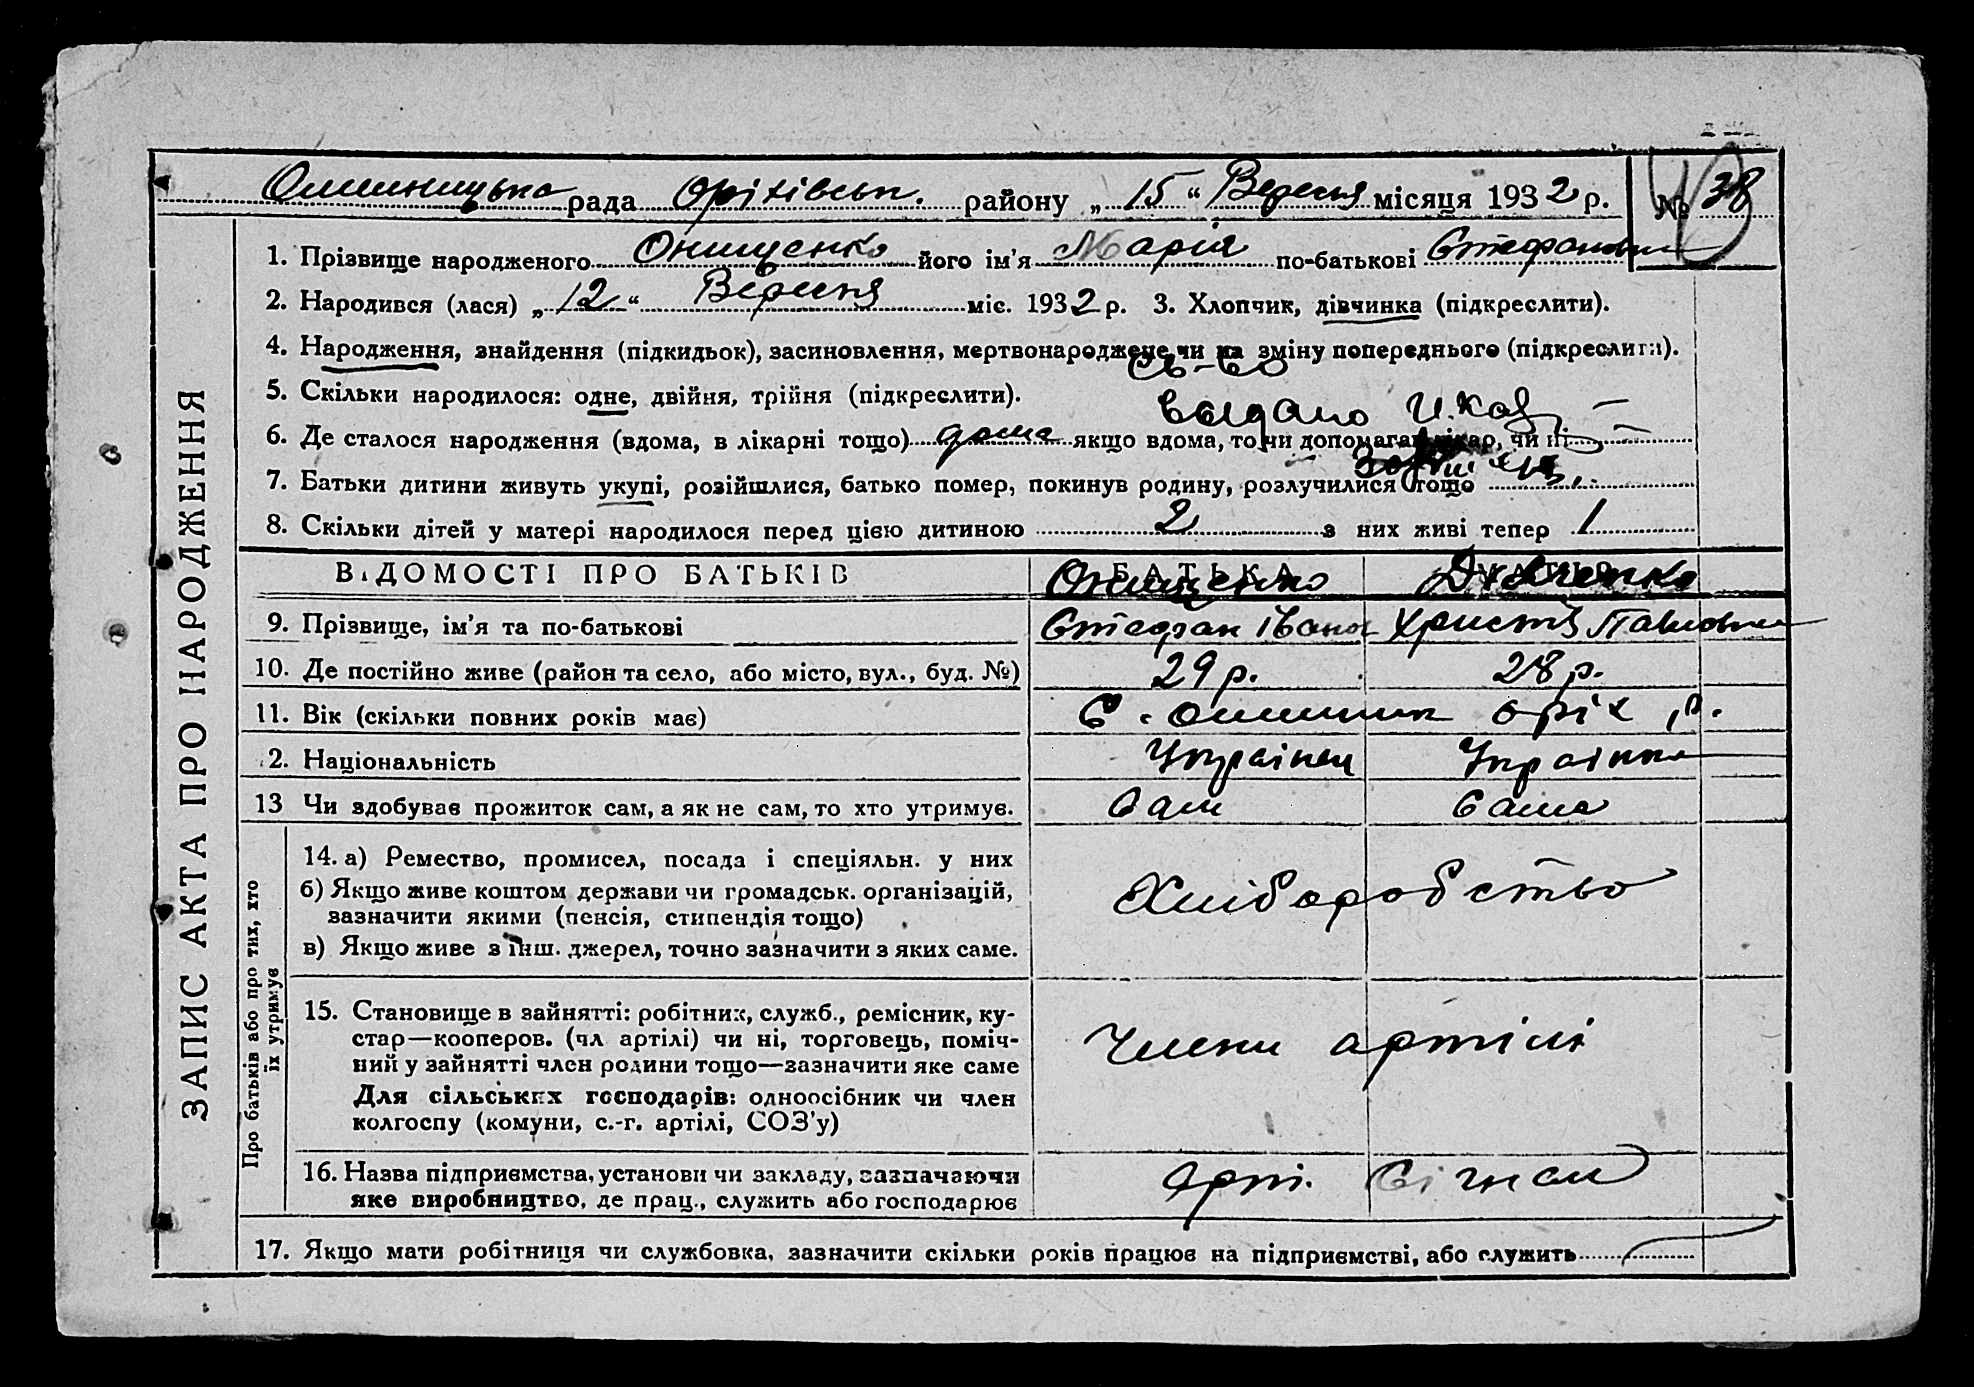 рада Оріхівськ. району „15“ Вересня місяця 1932 р. № 38
1. Прізвище народженого Онищенко його ім’я Марія по-батькові Стефановна
2. Народився (лася) „12“ Вересня міс. 1932 р. 3. Хлопчик, дівчинка (підкреслити).
4. Народження, знайдення (підкидьок), засиновлення, мертвонароджене, чи на зміну попереднього (підкреслити).
Св-во
5. Скільки народилося: одне, двійня, трійня (підкреслити).
выдано
6. Де сталося народження (вдома, в лікарні тощо) дома якщо вдома, то чи допомагав лікар, чи ні
7. Батьки дитини живуть укупі, розійшлися, батько помер, покинув родину, розлучилися тощо
8. Скільки дітей у матері народилося перед цією дитиною 2 з них живі тепер 1
ВІДОМОСТІ ПРО БАТЬКІВ БАТЬКА Онищенко МАТИР
9. Прізвище, ім’я та по-батькові Стефан Іванов Христя Павловна
10. Де постійно живе (район та село, або місто, вул., буд. №) 29 р. 28 р.
11. Вік (скільки повних років має) С. Оріх р.
2. Національність Українец Українка
13 Чи здобував прожиток сам, а як не сам, то хто утримує. Сам Сама
14. а) Ремество, промисел, посада і спеціяльн. у них
б) Якщо живе коштом держави чи громадськ. організацій,
зазначити якими (пенсія, стипендія тощо)
Хліборобство
в) Якщо живе з інш. джерел, точно зазначити з яких саме.
15. Становище в зайнятті: робітник, служб., ремісник, ку-
стар—кооперов. (чл артілі) чи ні, торговець, поміч-
ний у зайнятті член родини тощо—зазначити яке саме
Члени артілі
Для сільських господарів: одноосібник чи член
колгоспу (комуни, с.-г. артілі, СОЗ’у)
16. Назва підприємства, установи чи закладу, зазначаючи
яке виробництво, де прац., служить або господарює
Арт. Сігнал
17. Якщо мати робітниця чи службовка, зазначити скільки років працює на підприємстві, або служить
ЗАПИС АКТА ПРО НАРОДЖЕННЯ
Про батьків або про тих, хто
їх утримує